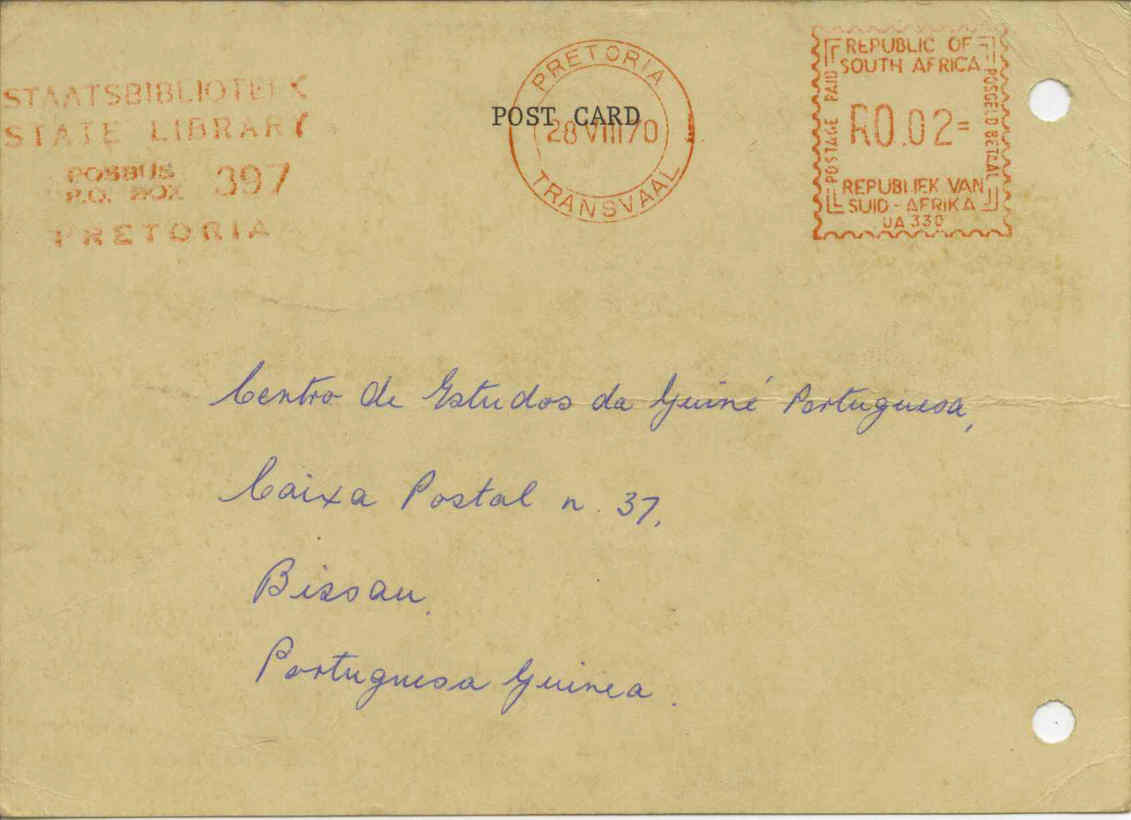 STAATSBIBLIOTEEK
STATE LIBRARY
POSBUS
P.O. BOX 397
PRETORIA
POST CARD
PRETORIA
28 VIII 70
TRANSVAAL
REPUBLIC OF
SOUTH AFRICA
POSTAGE PAID
R0.02=
POSGELD BETAAL
REPUBLIEK VAN
SUID-AFRIKA
UA 330
Centro de Estudos da Guiné Portuguesa,
Caixa Postal n. 37.
Bissau.
Portuguesa Guinea.